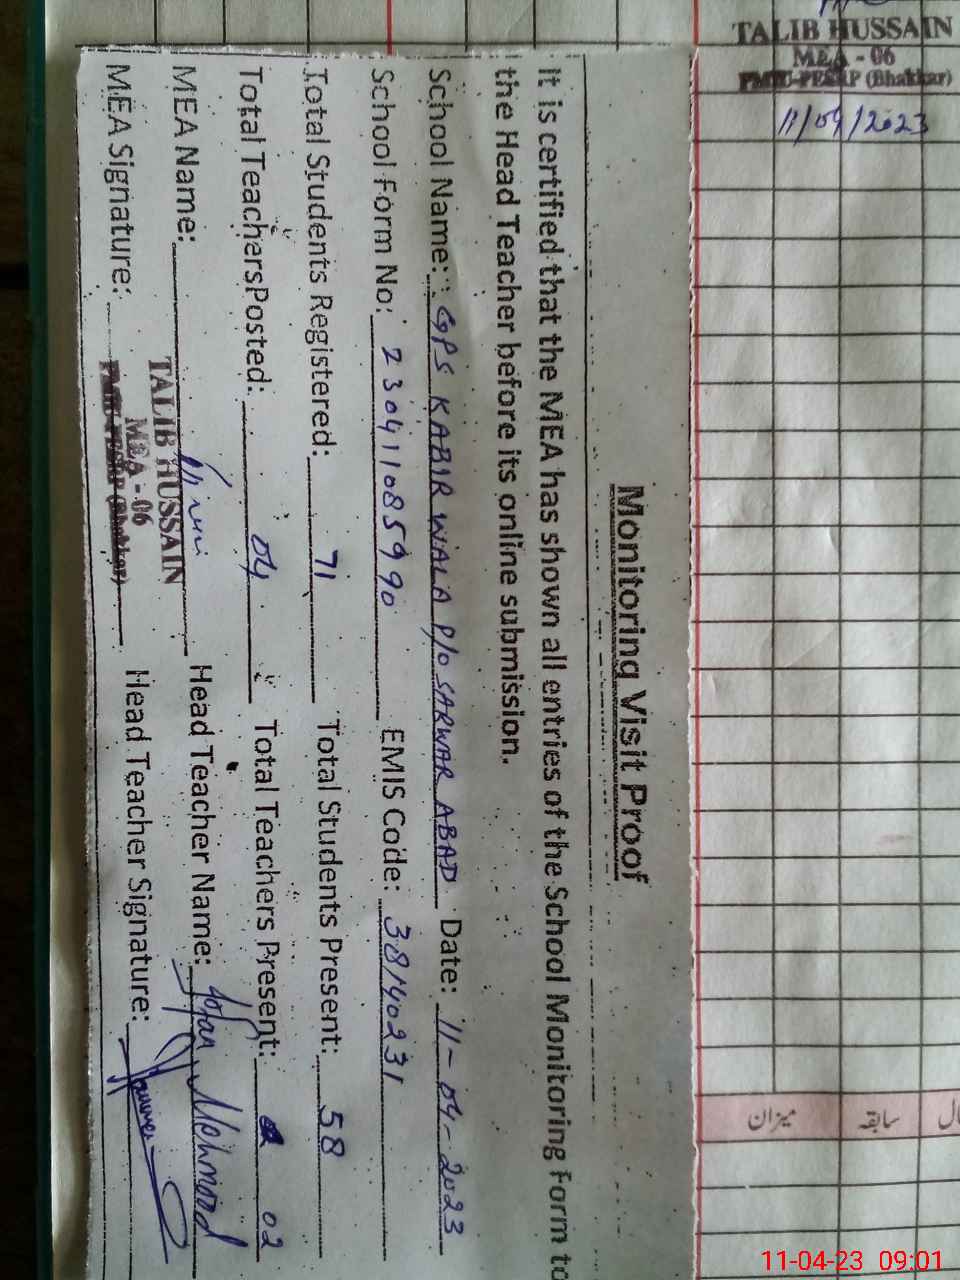 Monitoring Visit Proof
It is certified that the MEA has shown all entries of the School Monitoring Form to
the Head Teacher before its online submission.
School Name: GPS KABIR WALA P/o SARWAR ABAD Date: 11-04-2023
School Form No: 230411085990 EMIS Code: 38140231
Total Students Registered: 71 Total Students Present: 58
Total TeachersPosted: 04 Total Teachers Present: 02
MEA Name: Head Teacher Name: Mehmood
MEA Signature: Head Teacher Signature:
TALIB HUSSAIN
MEA - 06
PMIU-PESRP (Bhakkar)
TALIB HUSSAIN
MEA - 06
PMIU-PESRP (Bhakkar)
11/04/2023
میزان
سابقہ
11-04-23 09:01